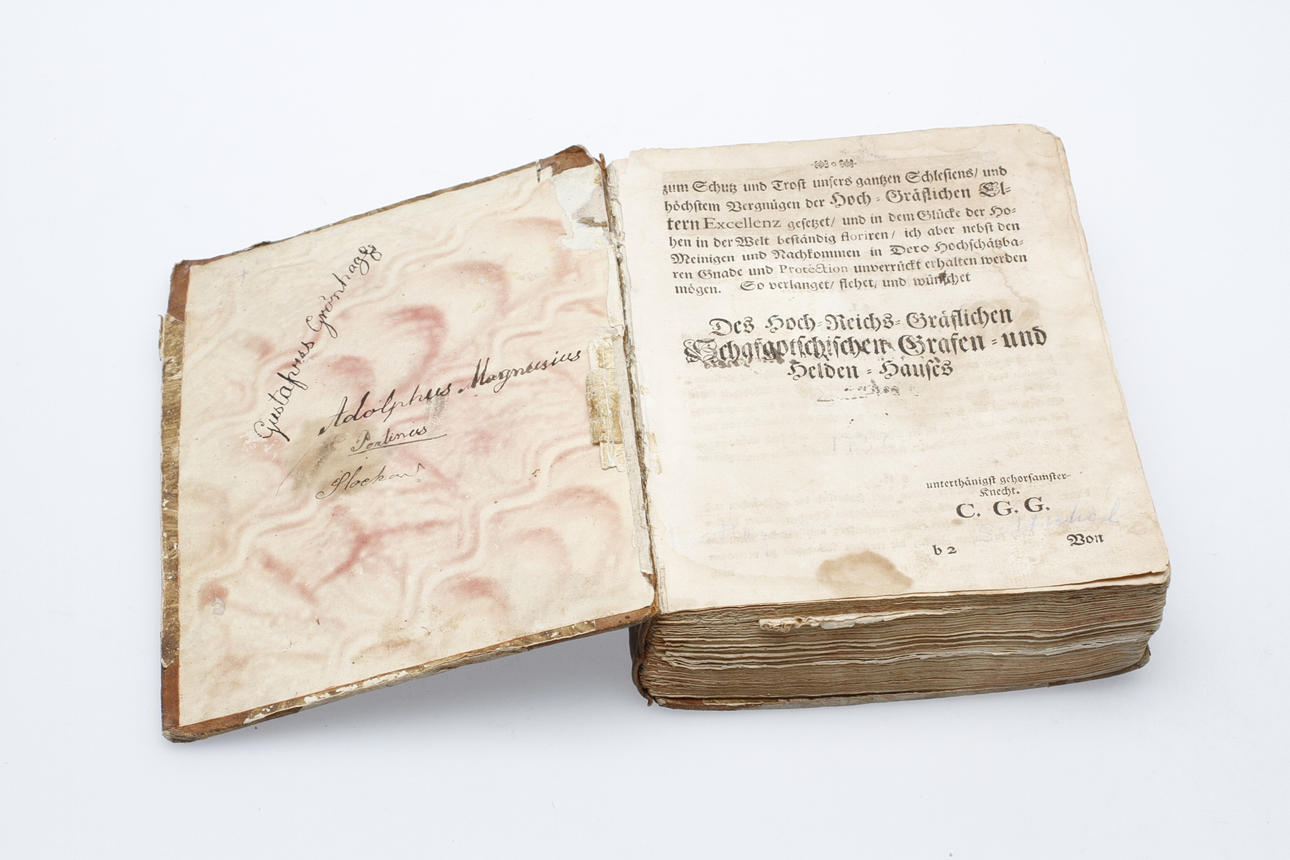 Gustafvus Grönhagg
Adolphus Magnusius
zum Schutz und Trost unsers gantzen Schlesiens/ und
höchstem Vergnügen der Hoch-Gräflichen El-
tern Excellenz gesetzet/ und in dem Glücke der Ho-
hen in der Welt beständig floriren/ ich aber nebst den
Meinigen und Nachkommen in Dero Hochschätzba-
ren Gnade und Protection unverrückt erhalten werden
mögen. So verlanget/ flehet, und wünschet
Des Hoch-Reichs-Gräflichen
Schafgotschischen Grafen-und
Helden-Hauses
unterthänigst gehorsamster
Knecht.
C. G. G.
b 2 Von